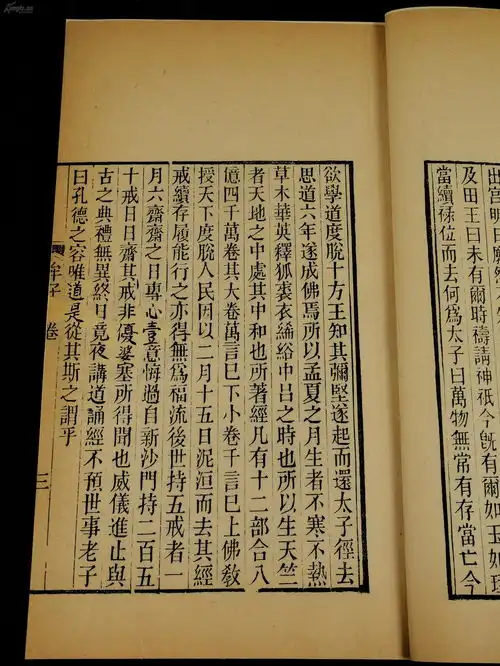 出宮明日
及田王曰未有爾時禱請神祇今旣有爾如玉如珪
當續祿位而去何爲太子曰萬物無常有存當亡今
欲學道度脫十方王知其彌堅遂起而還太子徑去
思道六年遂成佛焉所以孟夏之月生者不寒不熱
草木華英釋狐裘衣絺綌中呂之時也所以生天竺
者天地之中處其中和也所著經凡有十二部合八
億四千萬卷其大卷萬言巳下小卷千言巳上佛敎
授天下度脫人民因以二月十五日泥洹而去其經
戒續存履能行之亦得無爲福流後世持五戒者一
月六齋齋之日專心壹意悔過自新沙門持二百五
十戒日日齋其戒非優婆塞所得聞也威儀進止與
古之典禮無異終日竟夜講道誦經不預世事老子
曰孔德之容唯道是從其斯之謂乎
牟子 卷 三